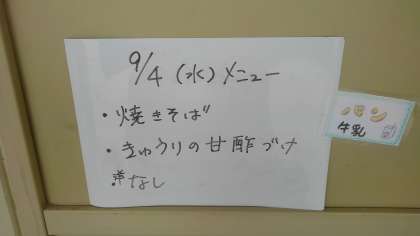 9/4(水)メニュー
・焼きそば
・きゅうりの甘酢づけ
・洋なし
パン
牛乳